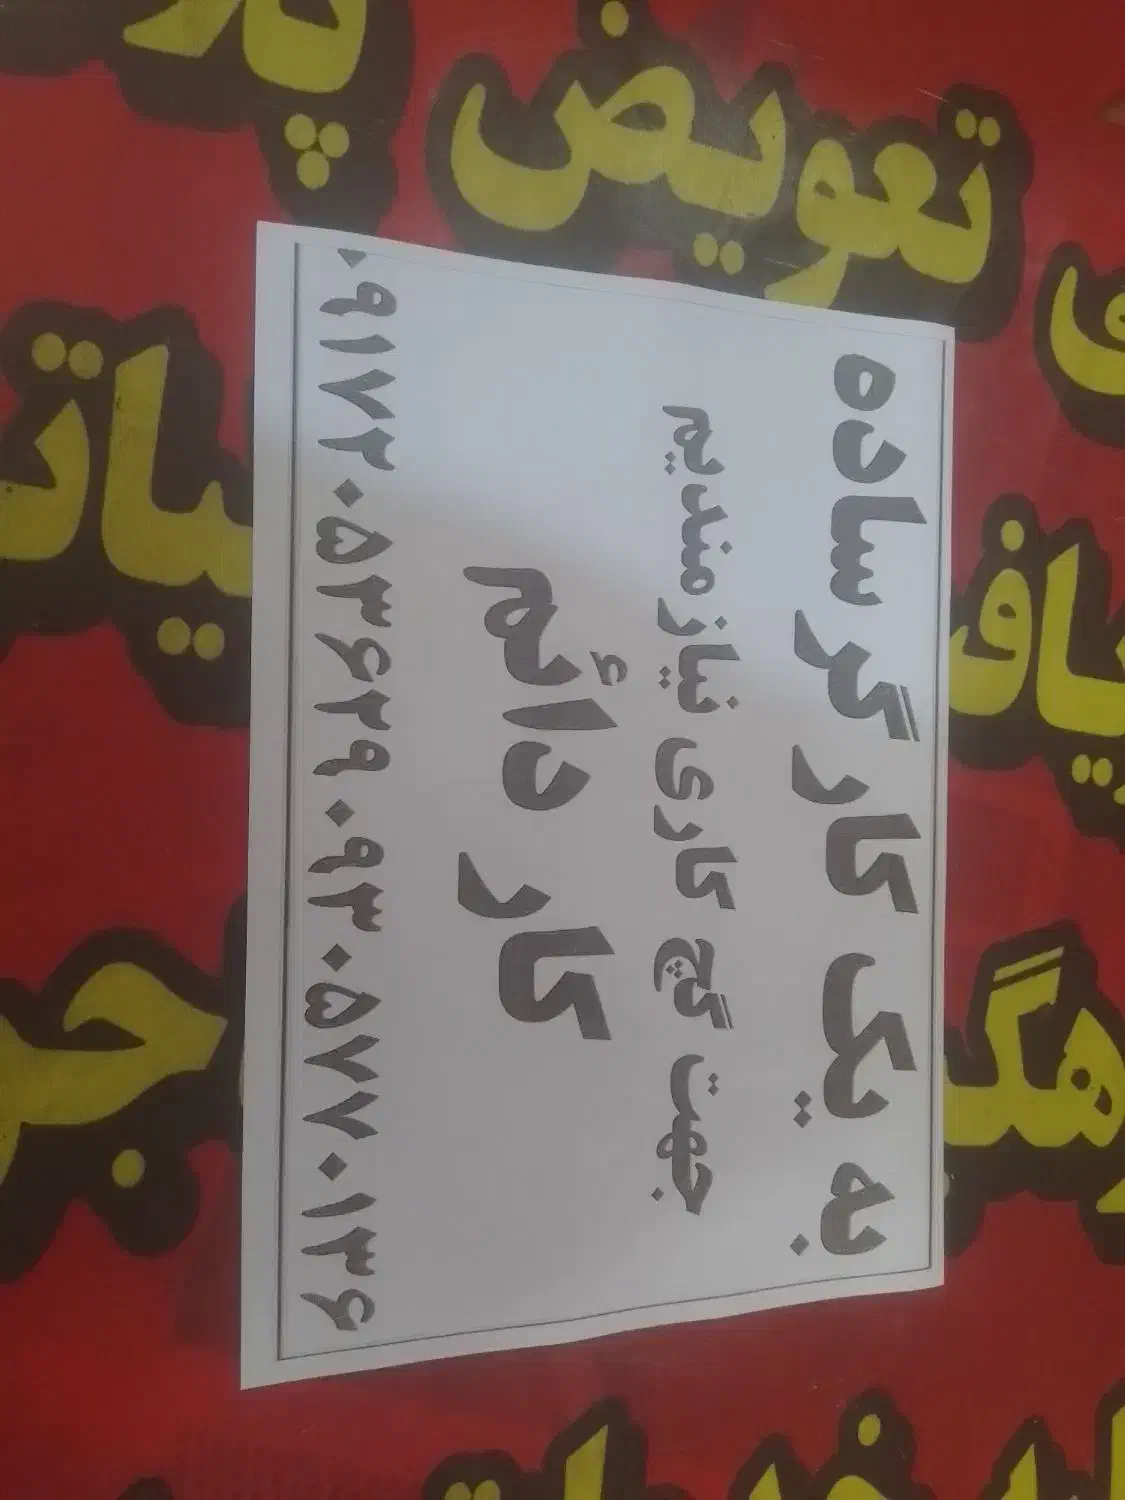 تعویض
به یک کارگر ساده
جهت گچ کاری نیازمندیم
کار دائم
۰۹۱۷۲۰۵۳۶۲۹۰۹۳۰۵۷۷۰۱۳۶